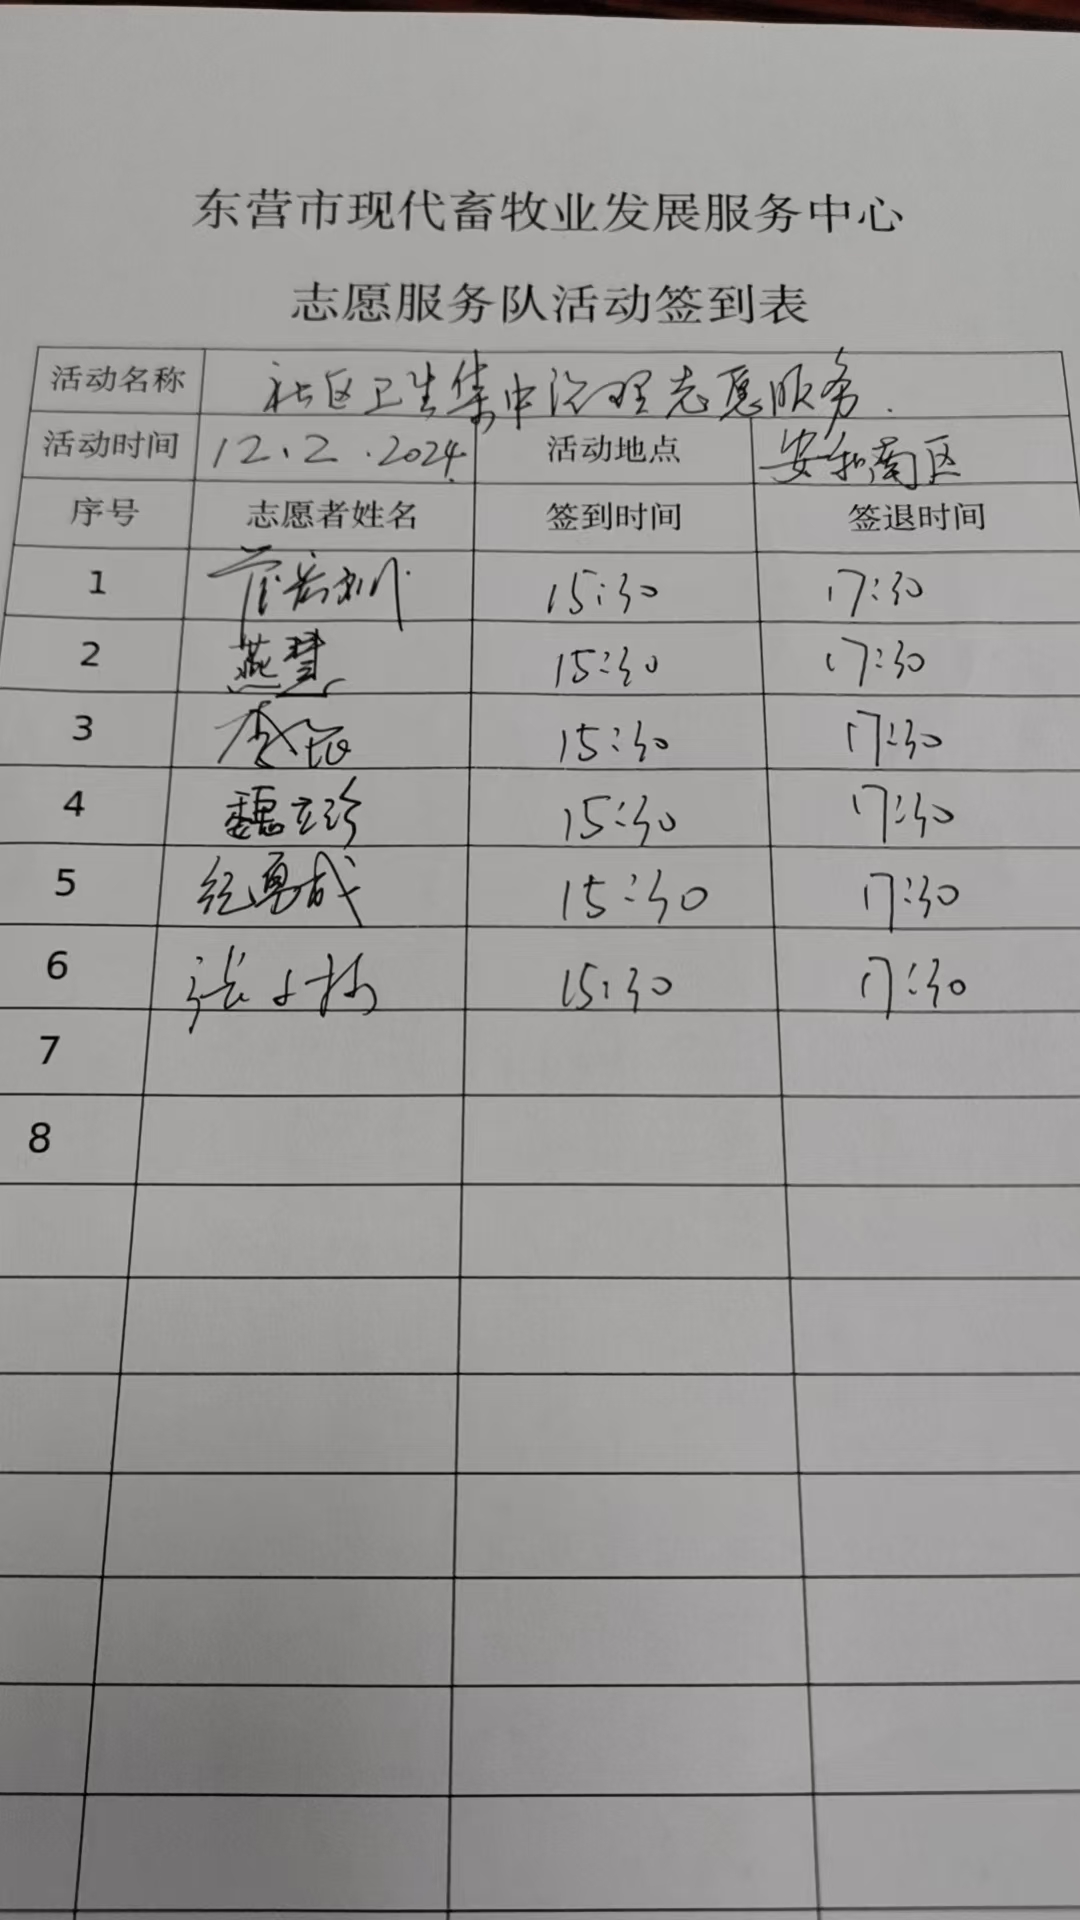 东营市现代畜牧业发展服务中心
志愿服务队活动签到表
活动名称 社区卫生集中治理志愿服务.
活动时间 12.2.2024. 活动地点 安和南区
序号 志愿者姓名 签到时间 签退时间
1 15:30 17:30
2 燕慧 15:30 17:30
3 李 15:30 17:30
4 魏立珍 15:30 17:30
5 纪勇成 15:30 17:30
6 张 15:30 17:30
7
8